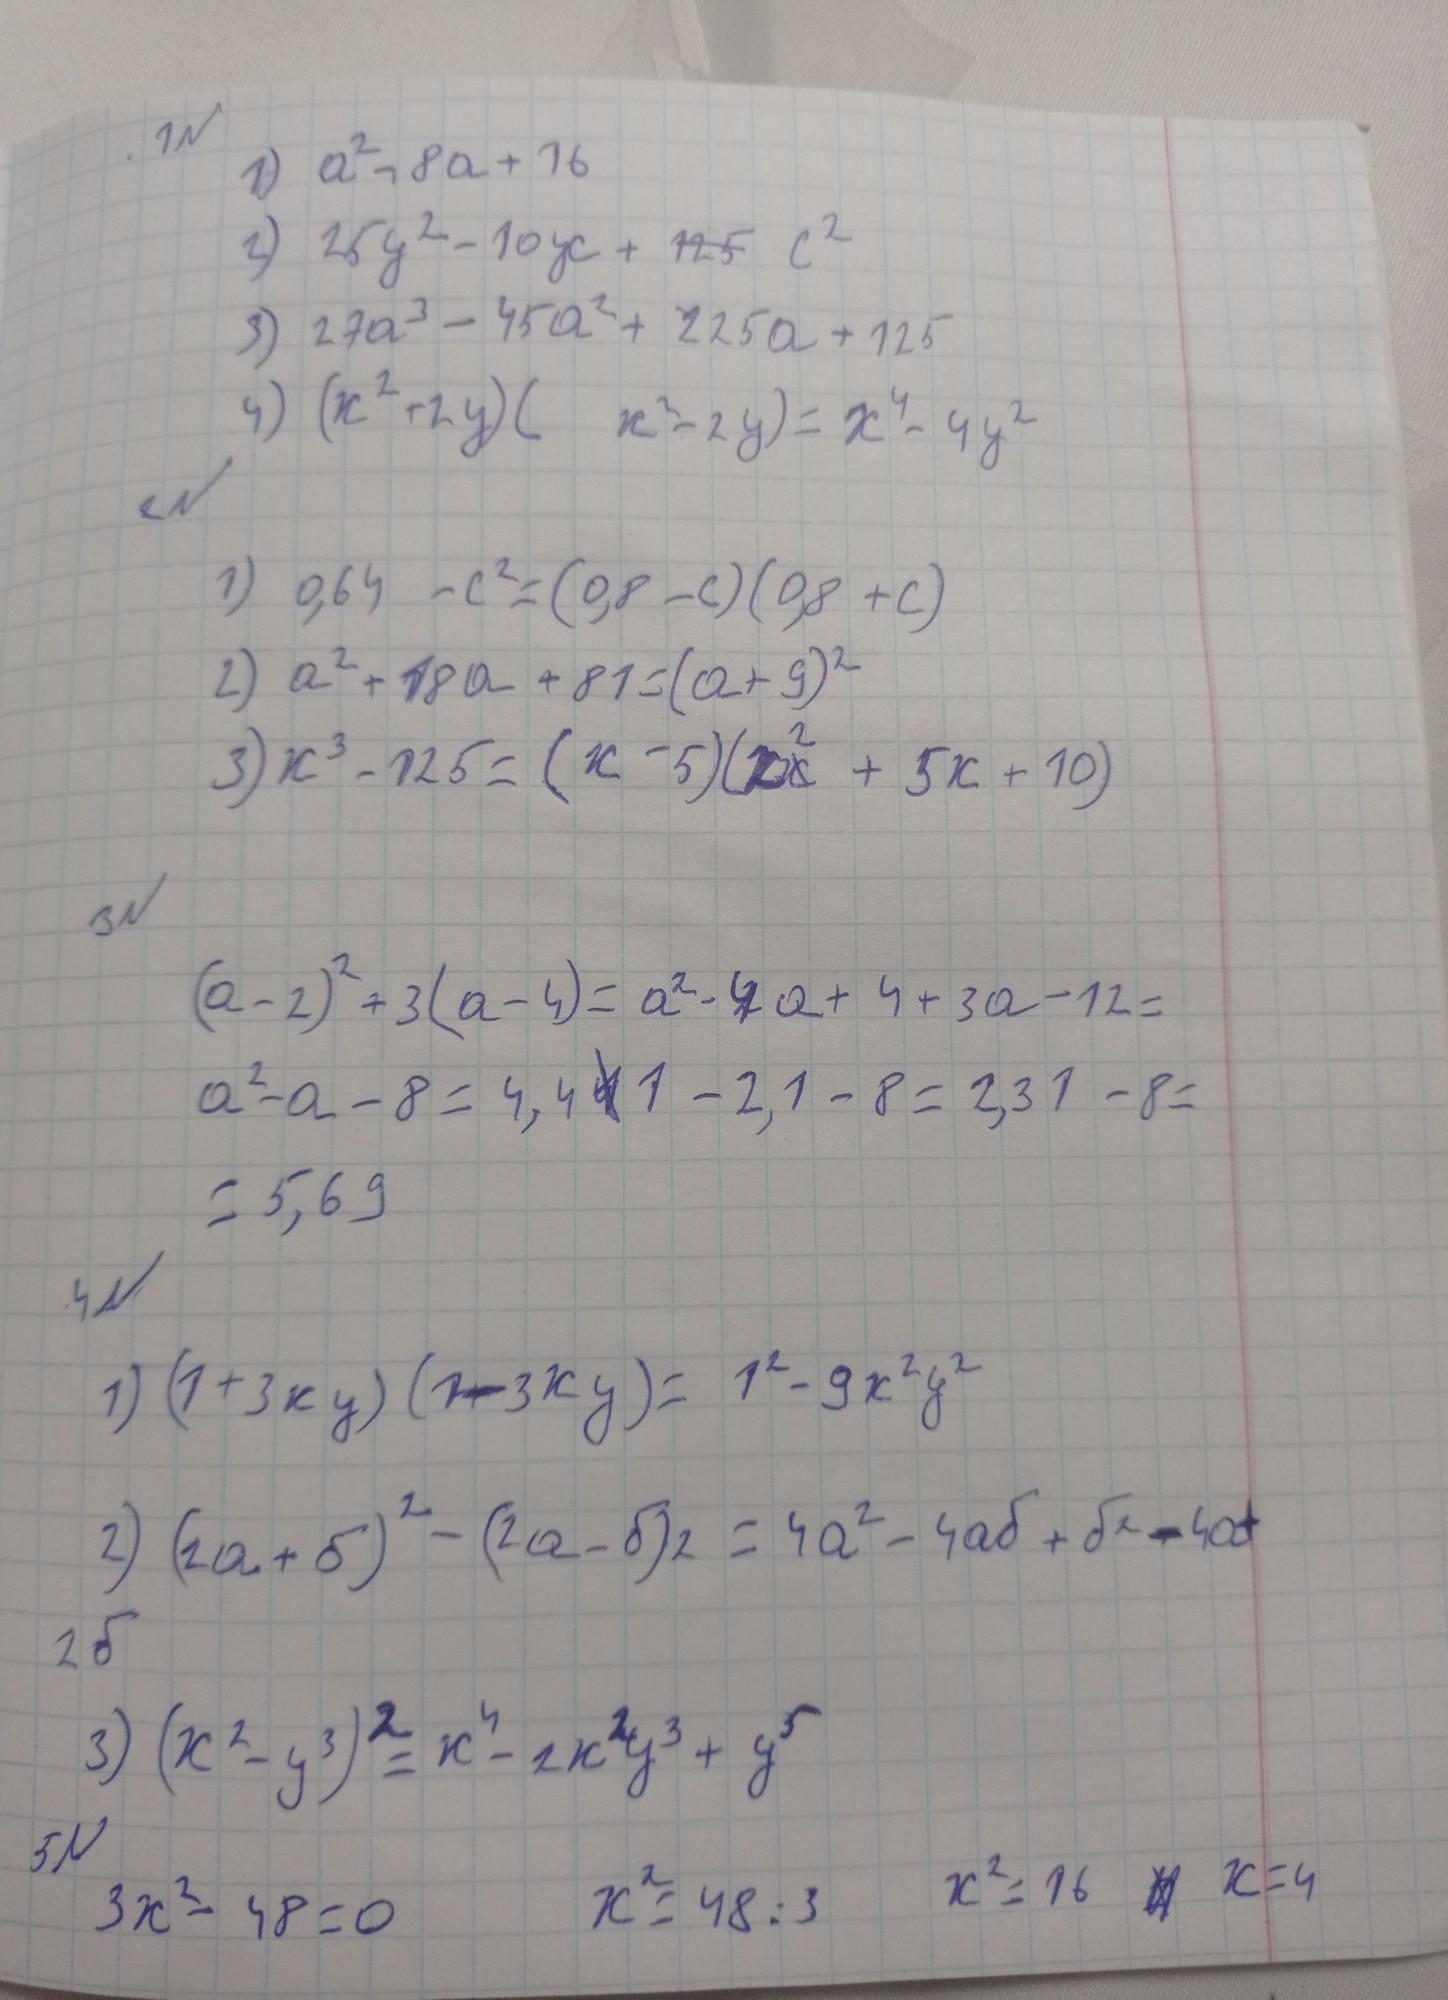 1N
1) a² - 8a + 16
2) 25y² - 10yc + 125 c²
3) 27a³ - 45a² + 225a + 125
4) (x² + 2y)( x² - 2y) = x⁴ - 4y²
2N
1) 0,64 - c² = (0,8 - c)(0,8 + c)
2) a² + 18a + 81 = (a + 9)²
3) x³ - 125 = (x - 5)(x² + 5x + 10)
3N
(a - 2)² + 3(a - 4) = a² - 4a + 4 + 3a - 12 =
a² - a - 8 = 4,41 - 2,1 - 8 = 2,31 - 8 =
= 5,69
4N
1) (1 + 3xy)(1 - 3xy) = 1² - 9x²y²
2) (2a + б)² - (2a - б)2 = 4a² - 4aб + б² - 4a+
2б
3) (x² - y³)² = x⁴ - 2x²y³ + y⁵
5N
3x² - 48 = 0 x² = 48 : 3 x² = 16 x = 4